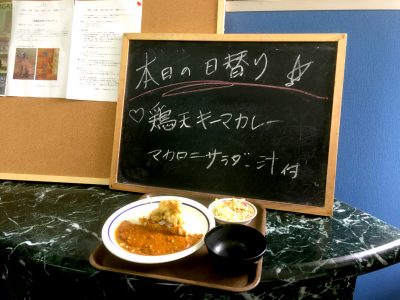 本日の日替り☆
♡鶏天キーマカレー
マカロニサラダ・汁付